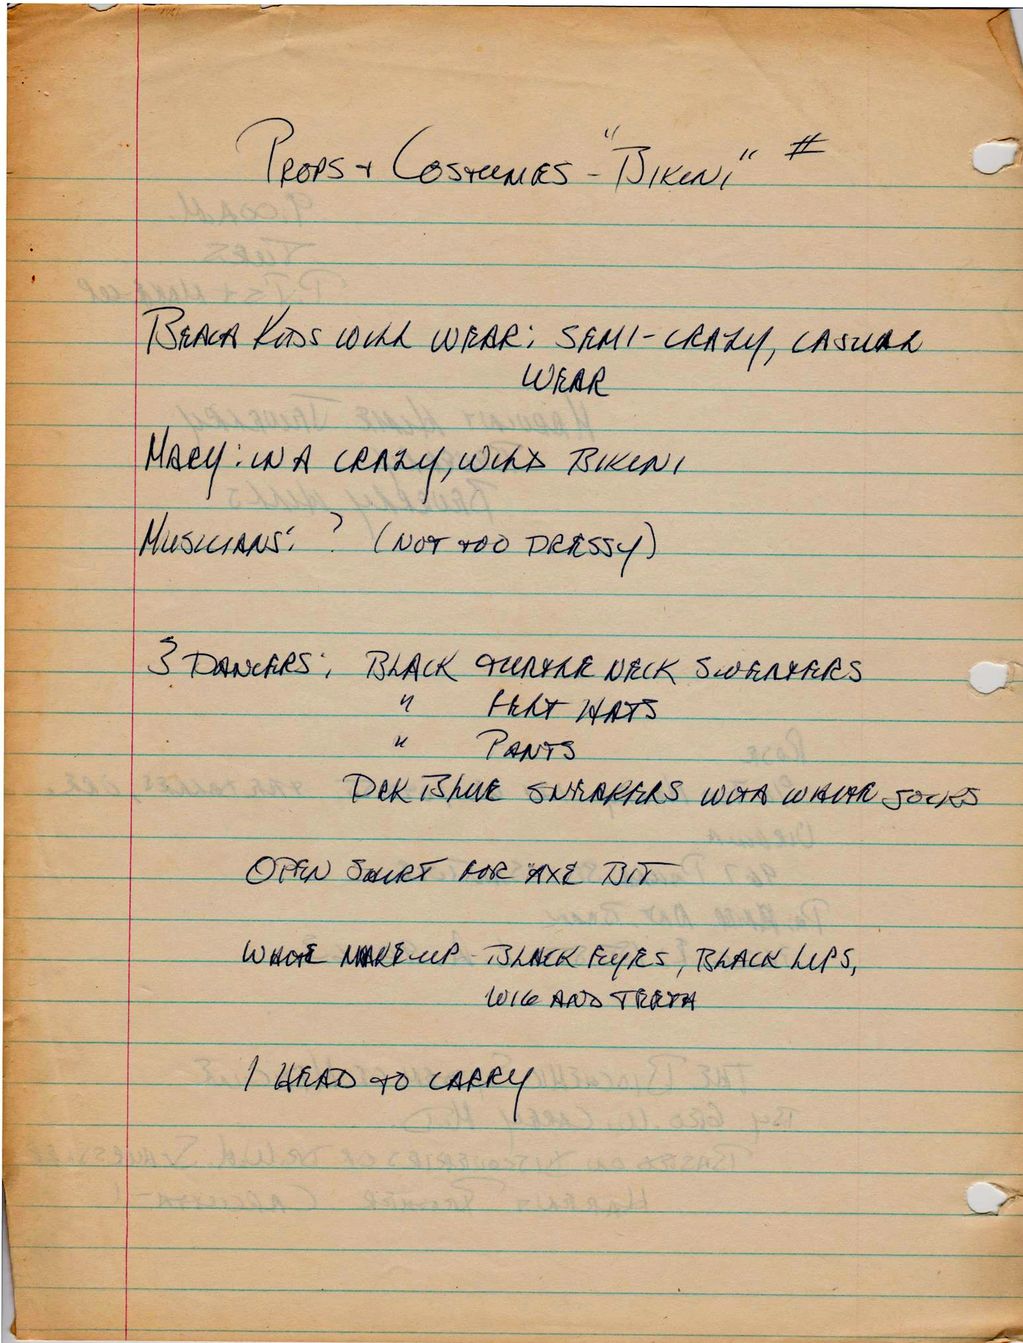 Props + Costumes - "Bikini" #
Beach Kids will wear: semi-crazy, casual
wear
Mary: in a crazy, wild Bikini
Musicians: ? (not too dressy)
3 Dancers: Black turtle neck sweaters
" felt hats
" Pants
Dck Blue sneakers with white socks
Open shirt for axe bit
White makeup - Black eyes, Black lips,
wig and teeth
1 head to carry